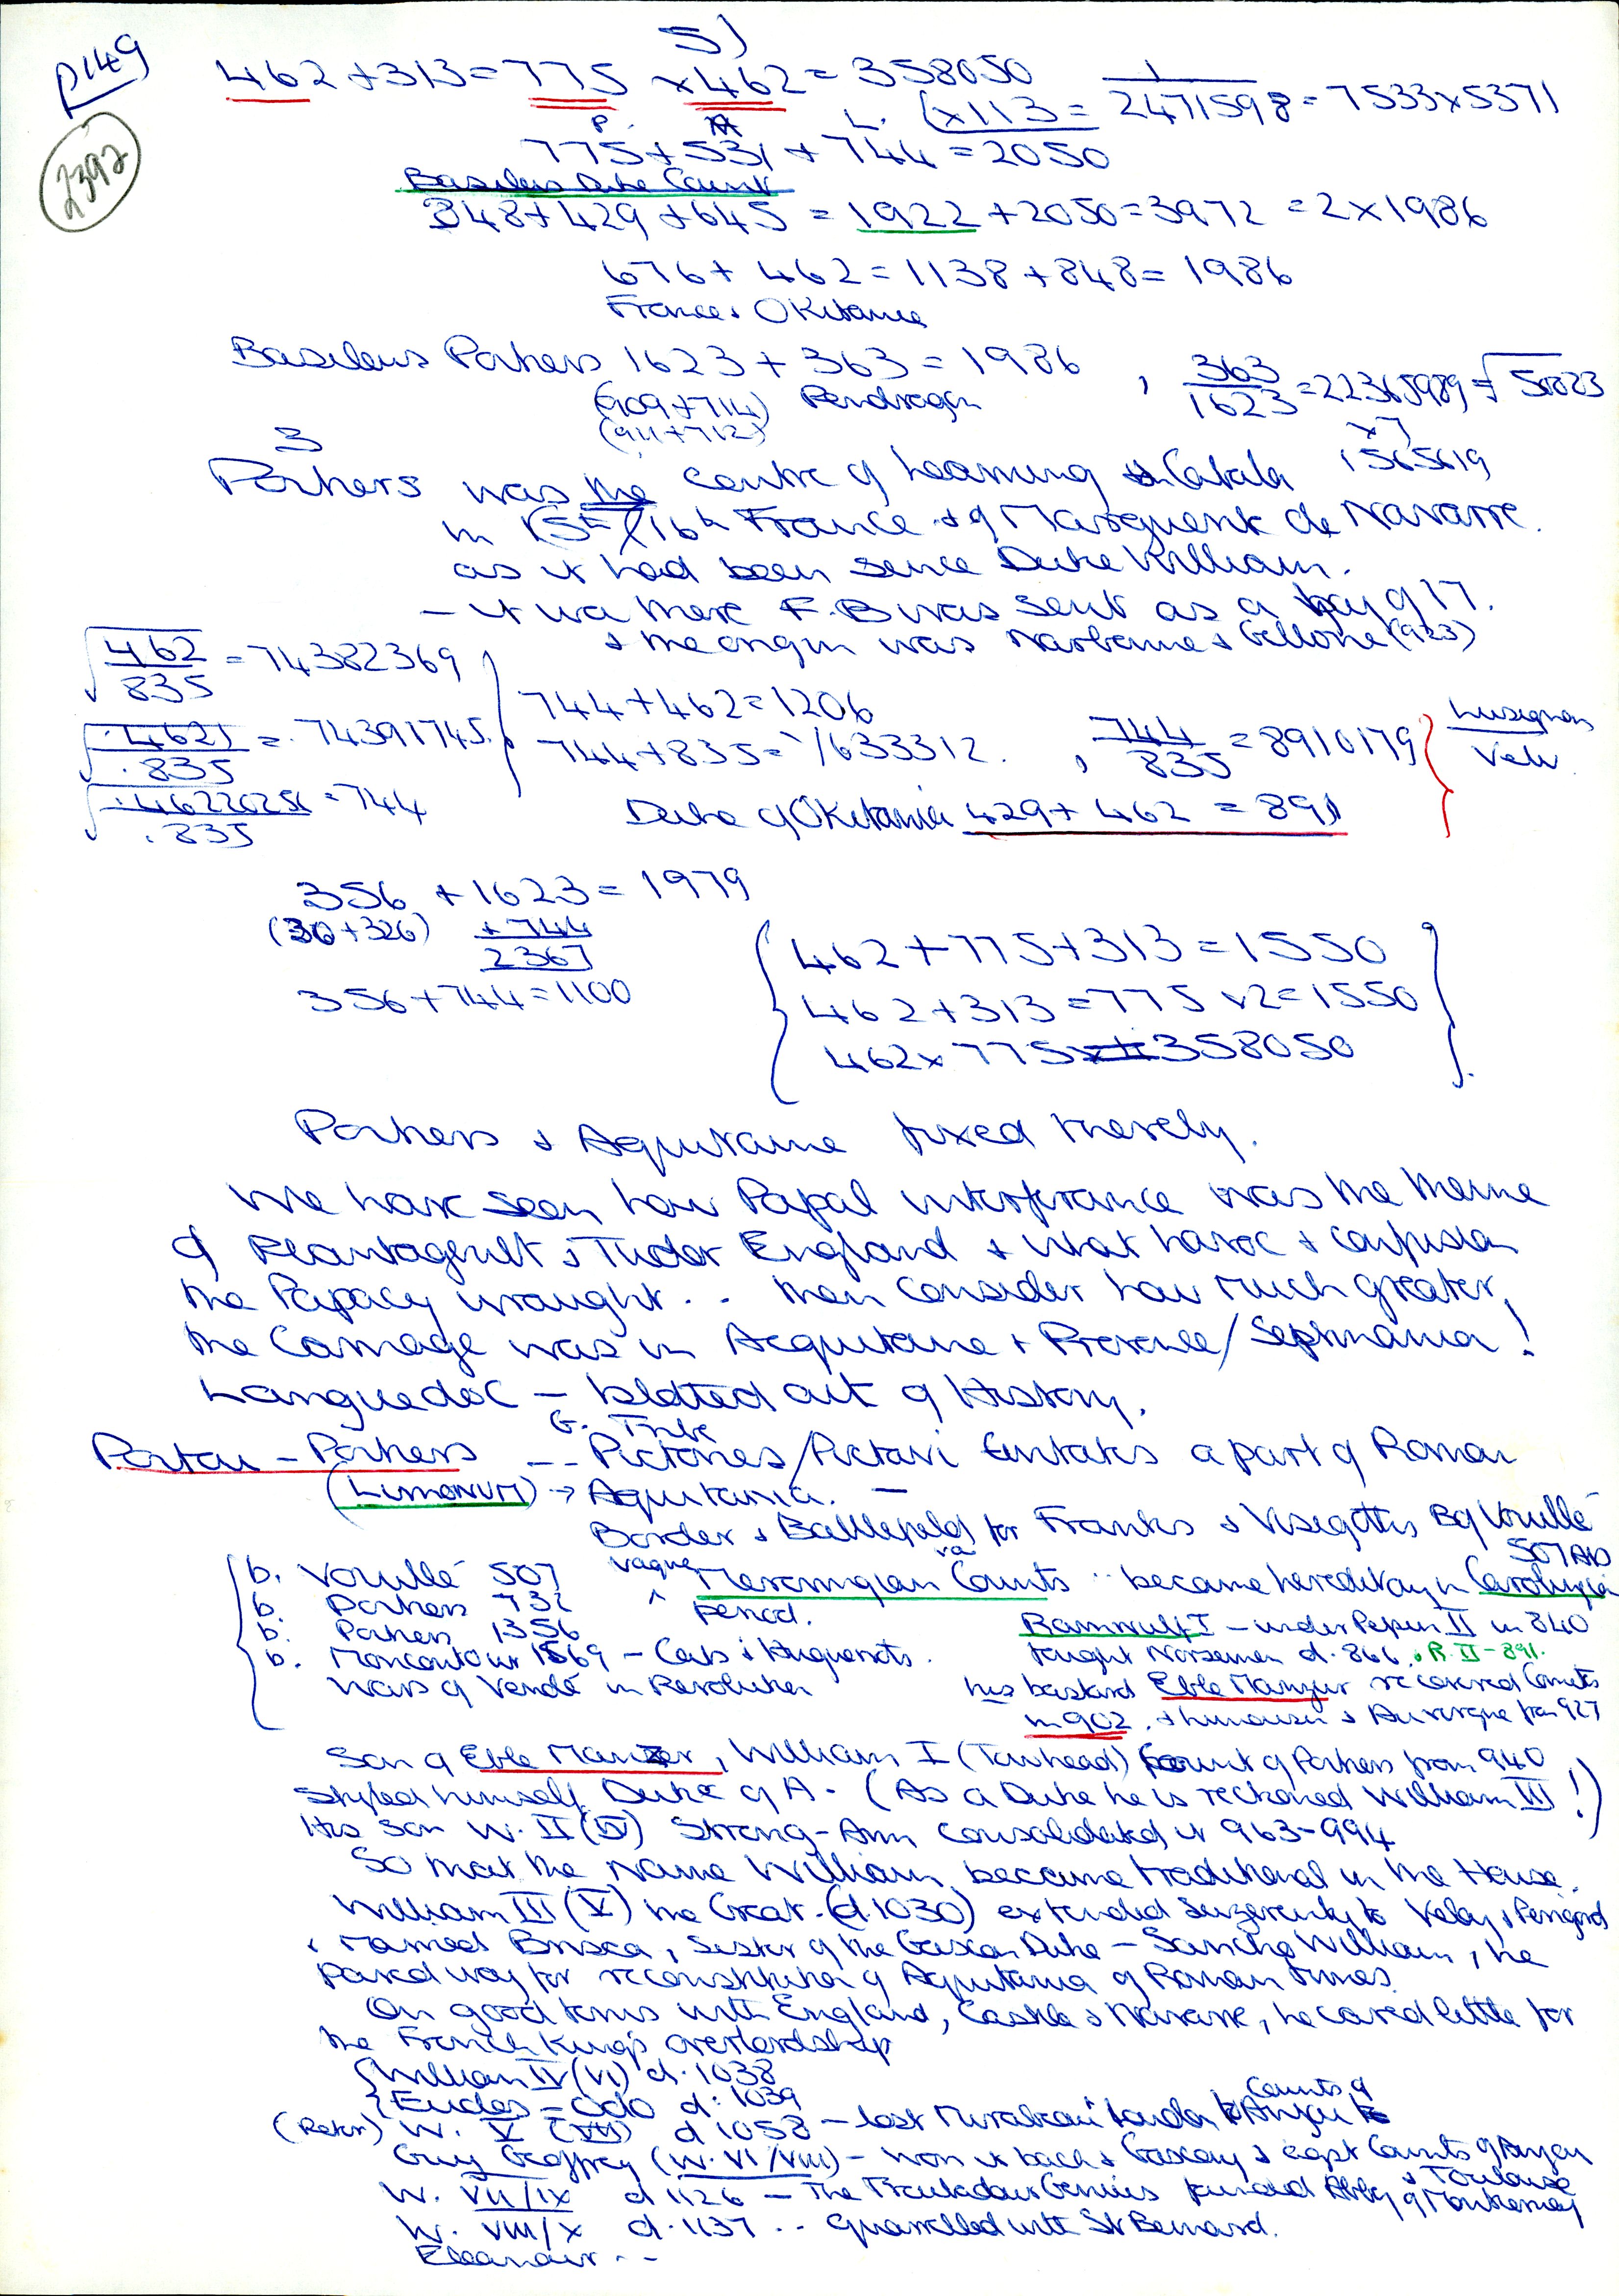 P149
2392
5)
462 + 313 = 775 x 462 = 358050
(x113 = 2471598 = 7533 x 5371
P. A L.
775 + 531 + 744 = 2050
Basileus Duke Count
848 + 429 + 645 = 1922 + 2050 = 3972 = 2 x 1986
676 + 462 = 1138 + 848 = 1986
France & OKitania
Basileus Poitiers 1623 + 363 = 1986 , 363/1623 = 22365989 = √50023
(909 + 714) Pendragon x7
(911 + 712) 1565619
3
Poitiers was the centre of Learning
in 15th/16th France & of Marguerite de Navarre.
as it had been since Duke William.
- it wa there F.B was sent as a boy of 17.
& the origin was Narbonne & Gellone (923)
√462/835 = 74382369
√.4621/.835 = .74391745
√.46220256/.835 = 744
744 + 462 = 1206
744 + 835 = 1/633312. , 744/835 = 8910179
Lusignan
Velu
Duke of OKitania 429 + 462 = 891
356 + 1623 = 1979
(30 + 326) + 744
2367
356 + 744 = 1100
462 + 775 + 313 = 1550
462 + 313 = 775 x 2 = 1550
462 x 775 358050
Poitiers & Aquitaine fixed thereby.
We have seen how Papal interferance was the theme
of Plantagenet & Tudor England & what havoc & confusion
the Papacy wrought . . then consider how much greater
the Carnage was in Acquitane & Provence/Septimania!
Languedoc - blotted out of History.
G. Tribe
Poitou - Poitiers -- Pictones/Pictavi Civitatis a part of Roman
(Limonum) → Aquitania. -
Border & Battlefield for Franks & Visegoths B of Vouillé
507 AD
b. Vouillé 507
b. Poitiers 732
b. Poitiers 1356
b. Moncontour 1569 - Cats & Huguenots.
Wars of Vendé in Revolution
vague Merovingian Counts .. became hereditary in Carolingian
period.
Ramnulf I - under Pepin II in 840
fought Norsemen d. 866, & R. II - 891.
his bastard Eble Manzer recovered Comtés
in 902, & Limousin & Auvergne from 927
Son of Eble Manzer, William I (Towhead) Count of Poitiers from 940
styled himself Duke of A. (As a Duke he is reckoned William III!)
His son W. II (IV) Strong-Arm consolidated it 963-994
So that the name William became traditional in the House.
William III (V) the Great. (d.1030) extended suzerenty to Velay & Perigord
& Married Brisca, sister of the Gascon Duke - Sancho William, he
paved way for reconstitution of Aquitania of Roman times.
On good terms with England, Castile & Navarre, he cared little for
the French King's overlordship
William IV (VI) d. 1038
Eudes - Odo d: 1039
W. V (VII) d 1058 - lost
Counts of
Guy Geoffrey (W. VI/VIII) - won it back & Gascony & kept Counts of Anjou
& Toulouse
W. VII/IX d 1126 - The Troubadour Genius founded Abbey of Montierneuf
W. VIII/X d. 1137 .. Quarrelled with St Bernard.
Eleanour - -